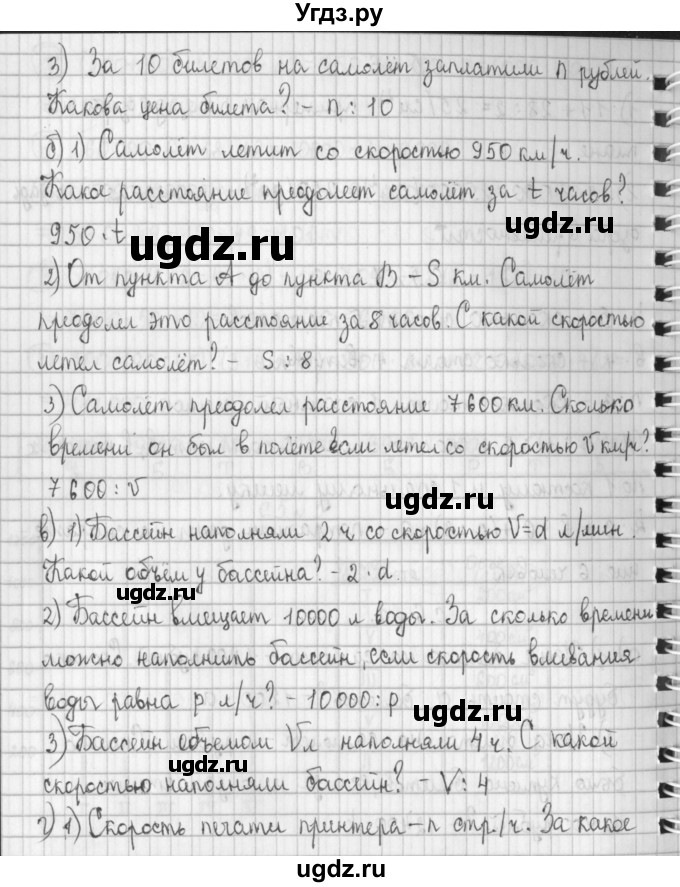 Угдз.ру
3) За 10 билетов на самолёт заплатили n рублей.
Какова цена билета? – n : 10
б) 1) Самолёт летит со скоростью 950 км/ч.
Какое расстояние преодолеет самолёт за t часов?
ugdz.ru
950 · t
ugdz.ru
2) От пункта А до пункта В – S км. Самолёт
преодолел это расстояние за 8 часов. С какой скоростью
летел самолёт? – S : 8
3) Самолёт преодолел расстояние 7600 км. Сколько
времени он был в полёте если летел со скоростью V км/ч?
7600 : V
ugdz.ru
в) 1) Бассейн наполняли 2 ч со скоростью V=d л/мин.
Какой объём у бассейна? – 2 · d
ugdz.ru
2) Бассейн вмещает 10000 л воды. За сколько времени
можно наполнить бассейн, если скорость вливания
воды равна p л/ч? – 10000 : p
ugdz.ru
3) Бассейн объёмом Vл наполняли 4 ч. С какой
ugdz.ru
скоростью наполняли бассейн? – V : 4
г) 1) Скорость печати принтера – n стр./ч. За какое
ugdz.ru